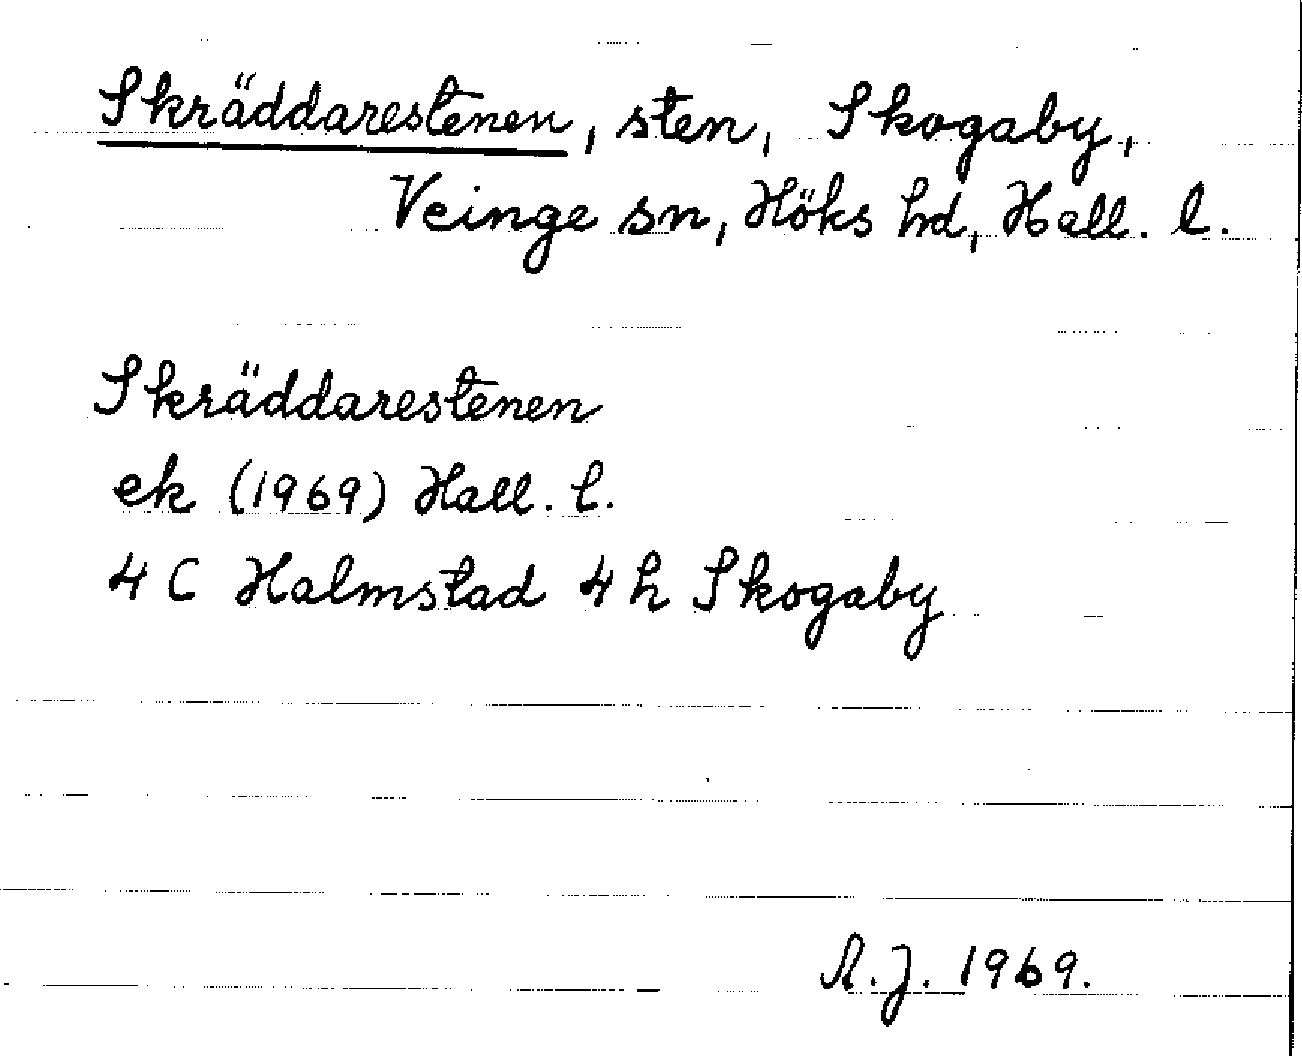 Skräddarestenen, sten, Skogaby,
Veinge sn, Höks hd, Hall. l.
Skräddarestenen
ek (1969) Hall. l.
4 C Halmstad 4 h Skogaby
A.J. 1969.